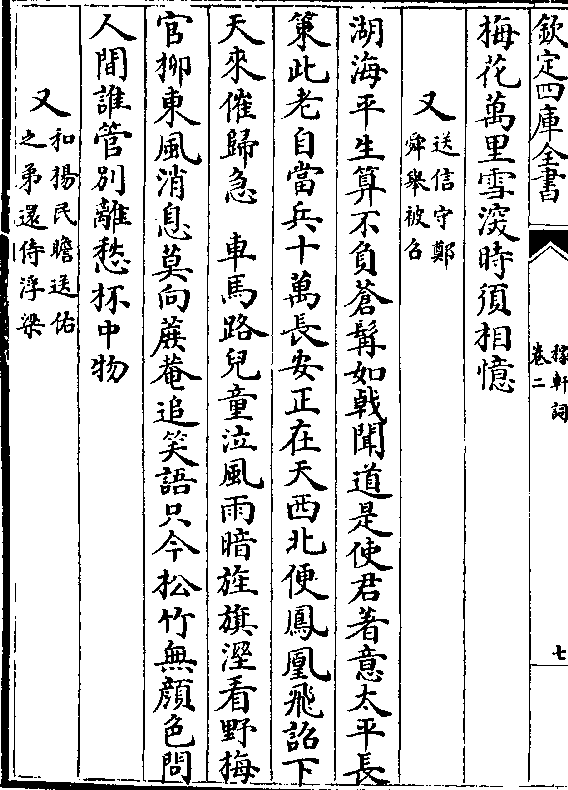 欽定四庫全書
稼軒詞
卷二
七
梅花萬里雪深時須相憶
又
送信守鄭
舜舉被召
湖海平生算不負蒼髯如戟聞道是使君著意太平長
策此老自當兵十萬長安正在天西北便鳳凰飛詔下
天來催歸急　車馬路兒童泣風雨暗旌旗溼看野梅
官柳東風消息莫向蔗菴追笑語只今松竹無顔色問
人間誰管别離愁杯中物
又
和楊民瞻送佑
之弟還侍浮梁